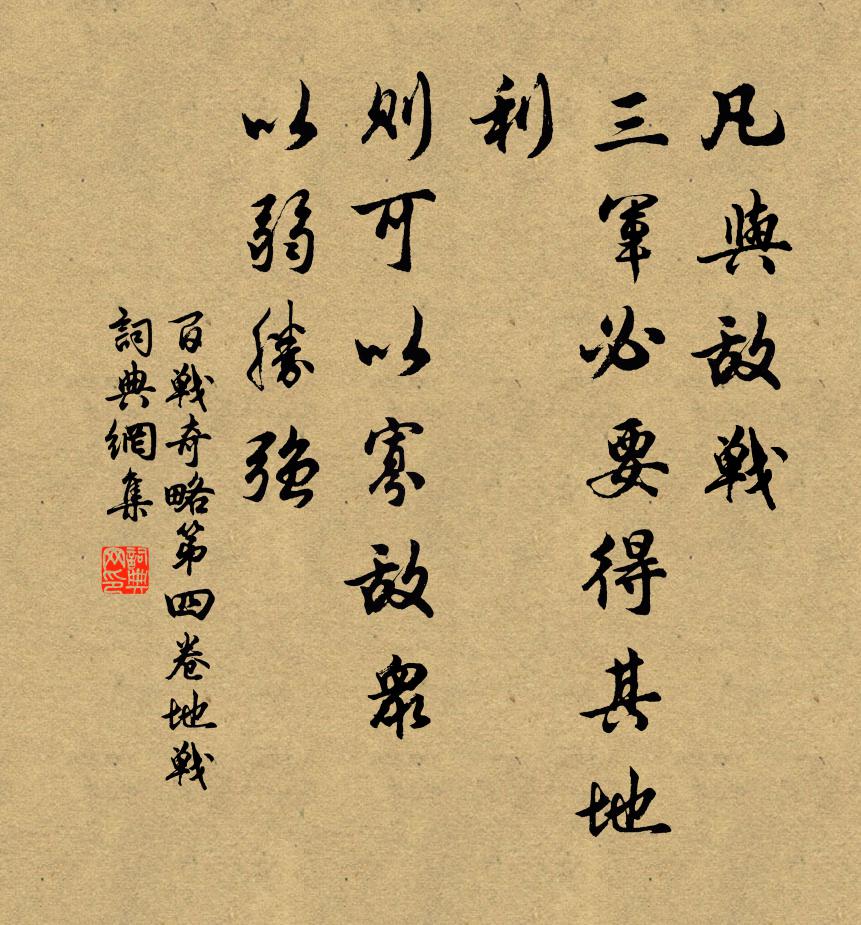 凡與敌戰
三軍必要得其地
利
則可以寡敌衆
以弱勝强
百戰奇略第四卷地戰
詞典網集
詞典
网印